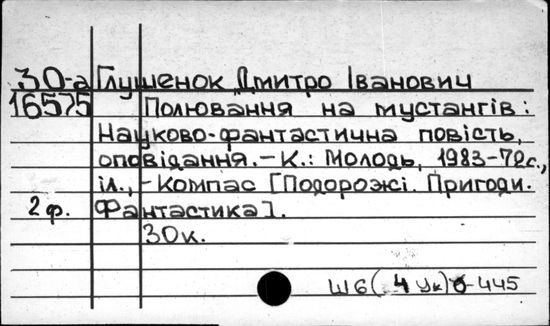 30-а Глушенок Дмитро Іванович
16575 Полювання на мустангів:
Науково-фантастична повість,
оповідання.-К.: Молодь, 1983-72с.,
іл.,-Компас [Подорожі. Пригоди.
2ф. Фантастика].
30к.
Ш6(4Ук)6-445